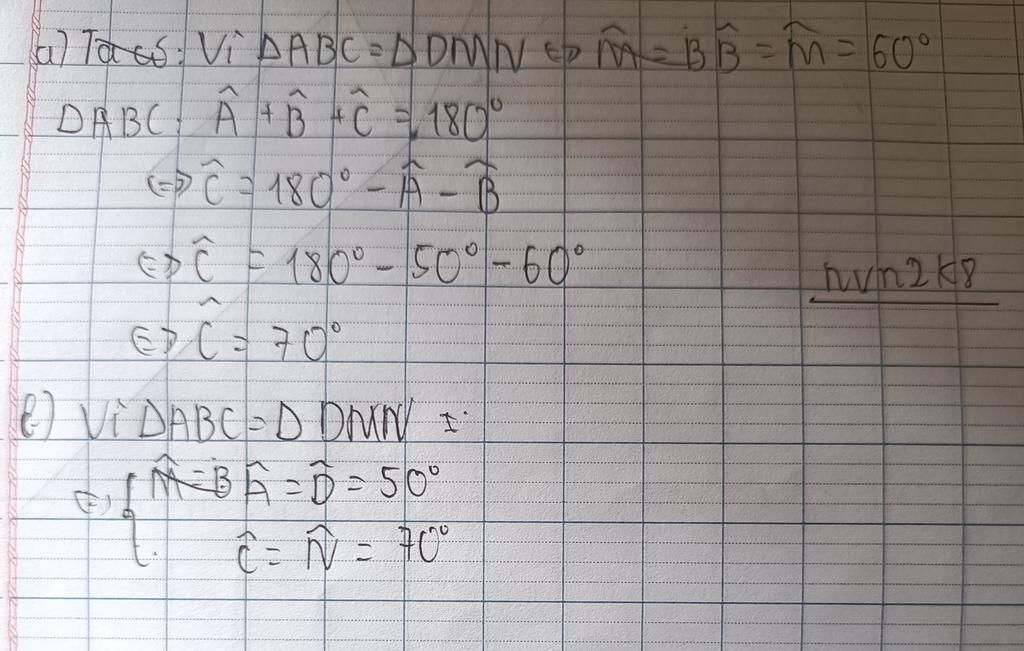 a) Ta có: Vì ΔABC = ΔDMN ⇔ M̂ = B B̂ = M̂ = 60°
ΔABC: Â + B̂ + Ĉ = 180°
⇔ Ĉ = 180° - Â - B̂
⇔ Ĉ = 180° - 50° - 60°
nvn2k8
⇔ Ĉ = 70°
b) Vì ΔABC = ΔDMN
⇔ { M̂ = B Â = D̂ = 50°
Ĉ = N̂ = 70°